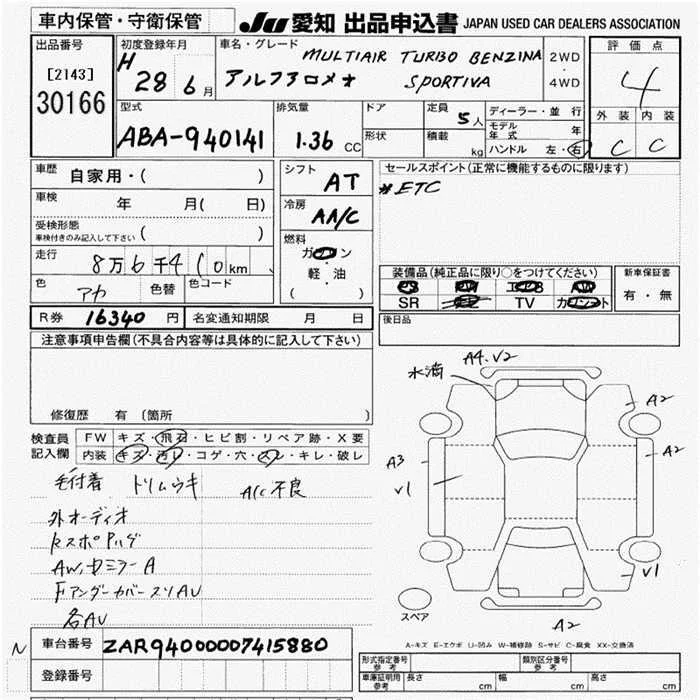 車内保管・守衛保管
JU 愛知 出品申込書 JAPAN USED CAR DEALERS ASSOCIATION
出品番号
[2143]
30166
初度登録年月
H 28 6月
車名・グレード
MULTIAIR TURBO BENZINA
アルファロメオ SPORTIVA
2WD
・
4WD
評価点
4
外装 内装
C C
型式
ABA-940141
排気量
1.36 CC
ドア
形状
定員
5人
積載
kg
ディーラー・並行
モデル年式 年
ハンドル 左・右
車歴
自家用・( )
車検
年 月( 日)
受検形態
車検付きのみ記入して下さい ( )
走行
8万6千4 ( 0 km
色
アカ
色替
色コード
シフト
AT
冷房
AA/C
燃料
ガソリン
・
軽・油
( )
セールスポイント(正常に機能するものに限ります)
*ETC
装備品(純正品に限り○をつけてください)
PS PW エアB AW
SR ナビ TV カワシート
新車保証書
有・無
R券 16340 円
名変通知期限 月 日
後日品
注意事項申告欄(不具合内容等は具体的に記入して下さい)
修復歴 有〔箇所 〕
検査員
記入欄
FW キズ・飛石・ヒビ割・リペア跡・X要
内装 キズ・汚レ・コゲ・穴・スレ・キレ・破レ
毛付着 トリムウキ A/C不良
外オーディオ
RスポPハゲ
AW,ドミラーA
Fアンダーカバースリ AU
各AU
水滴 A4.V2
A2
A3
A2
V1
V1
A2
スペア
A-キズ E-エクボ U-凹み W-補修跡 S-サビ C-腐食 XX-交換済
N
車台番号 ZAR94000007415880
登録番号
形式指定番号
参考
類別区分番号
参考
車庫証明用
参考
長さ cm 幅 cm 高さ cm